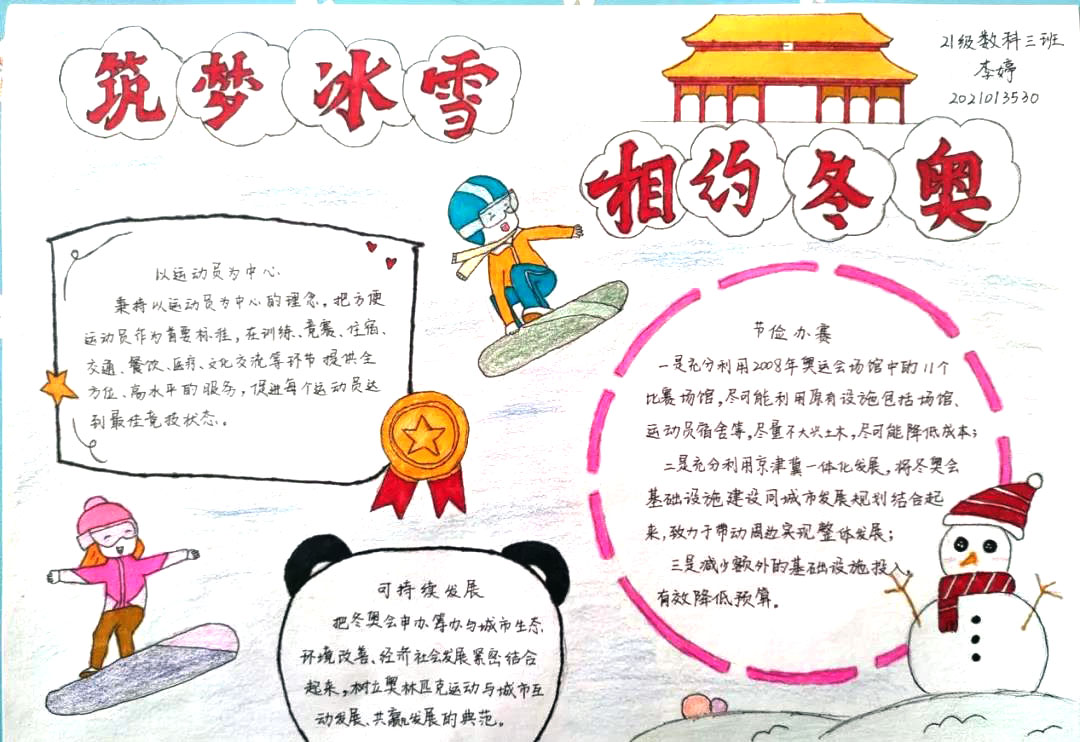 筑梦冰雪
21级数科三班
李婷
2021013530
相约冬奥
以运动员为中心
秉持以运动员为中心的理念，把方便
运动员作为首要标准，在训练、竞赛、住宿、
交通、餐饮、医疗、文化交流等环节提供全
方位、高水平的服务，促进每个运动员达
到最佳竞技状态。
节俭办赛
一是充分利用2008年奥运会场馆中的11个
比赛场馆，尽可能利用原有设施包括场馆、
运动员宿舍等，尽量不大兴土木，尽可能降低成本；
二是充分利用京津冀一体化发展，将冬奥会
基础设施建设同城市发展规划结合起
来，致力于带动周边实现整体发展；
三是减少额外的基础设施投入，
有效降低预算。
可持续发展
把冬奥会申办筹办与城市生态
环境改善、经济社会发展紧密结合
起来，树立奥林匹克运动与城市互
动发展、共赢发展的典范。